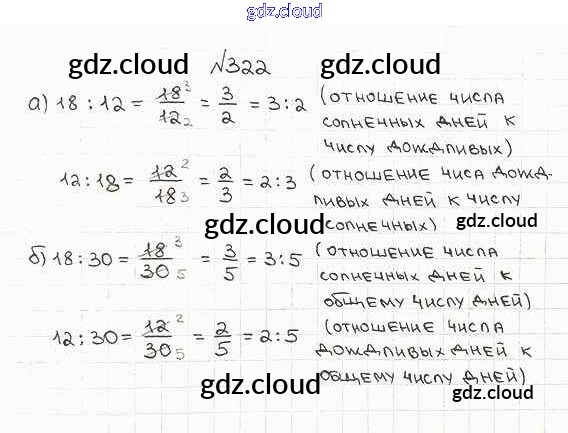 gdz.cloud
gdz.cloud №322 gdz.cloud
а) 18 : 12 = 18³/12₂ = 3/2 = 3 : 2 (отношение числа
солнечных дней к
числу дождливых)
12 : 18 = 12²/18₃ = 2/3 = 2 : 3 (отношение чиса дожд-
ливых дней к числу
солнечных)
gdz.cloud gdz.cloud
б) 18 : 30 = 18³/30₅ = 3/5 = 3 : 5 (отношение числа
солнечных дней к
общему числу дней)
12 : 30 = 12²/30₅ = 2/5 = 2 : 5 (отношение числа
дождливых дней к
общему числу дней)
gdz.cloud gdz.cloud